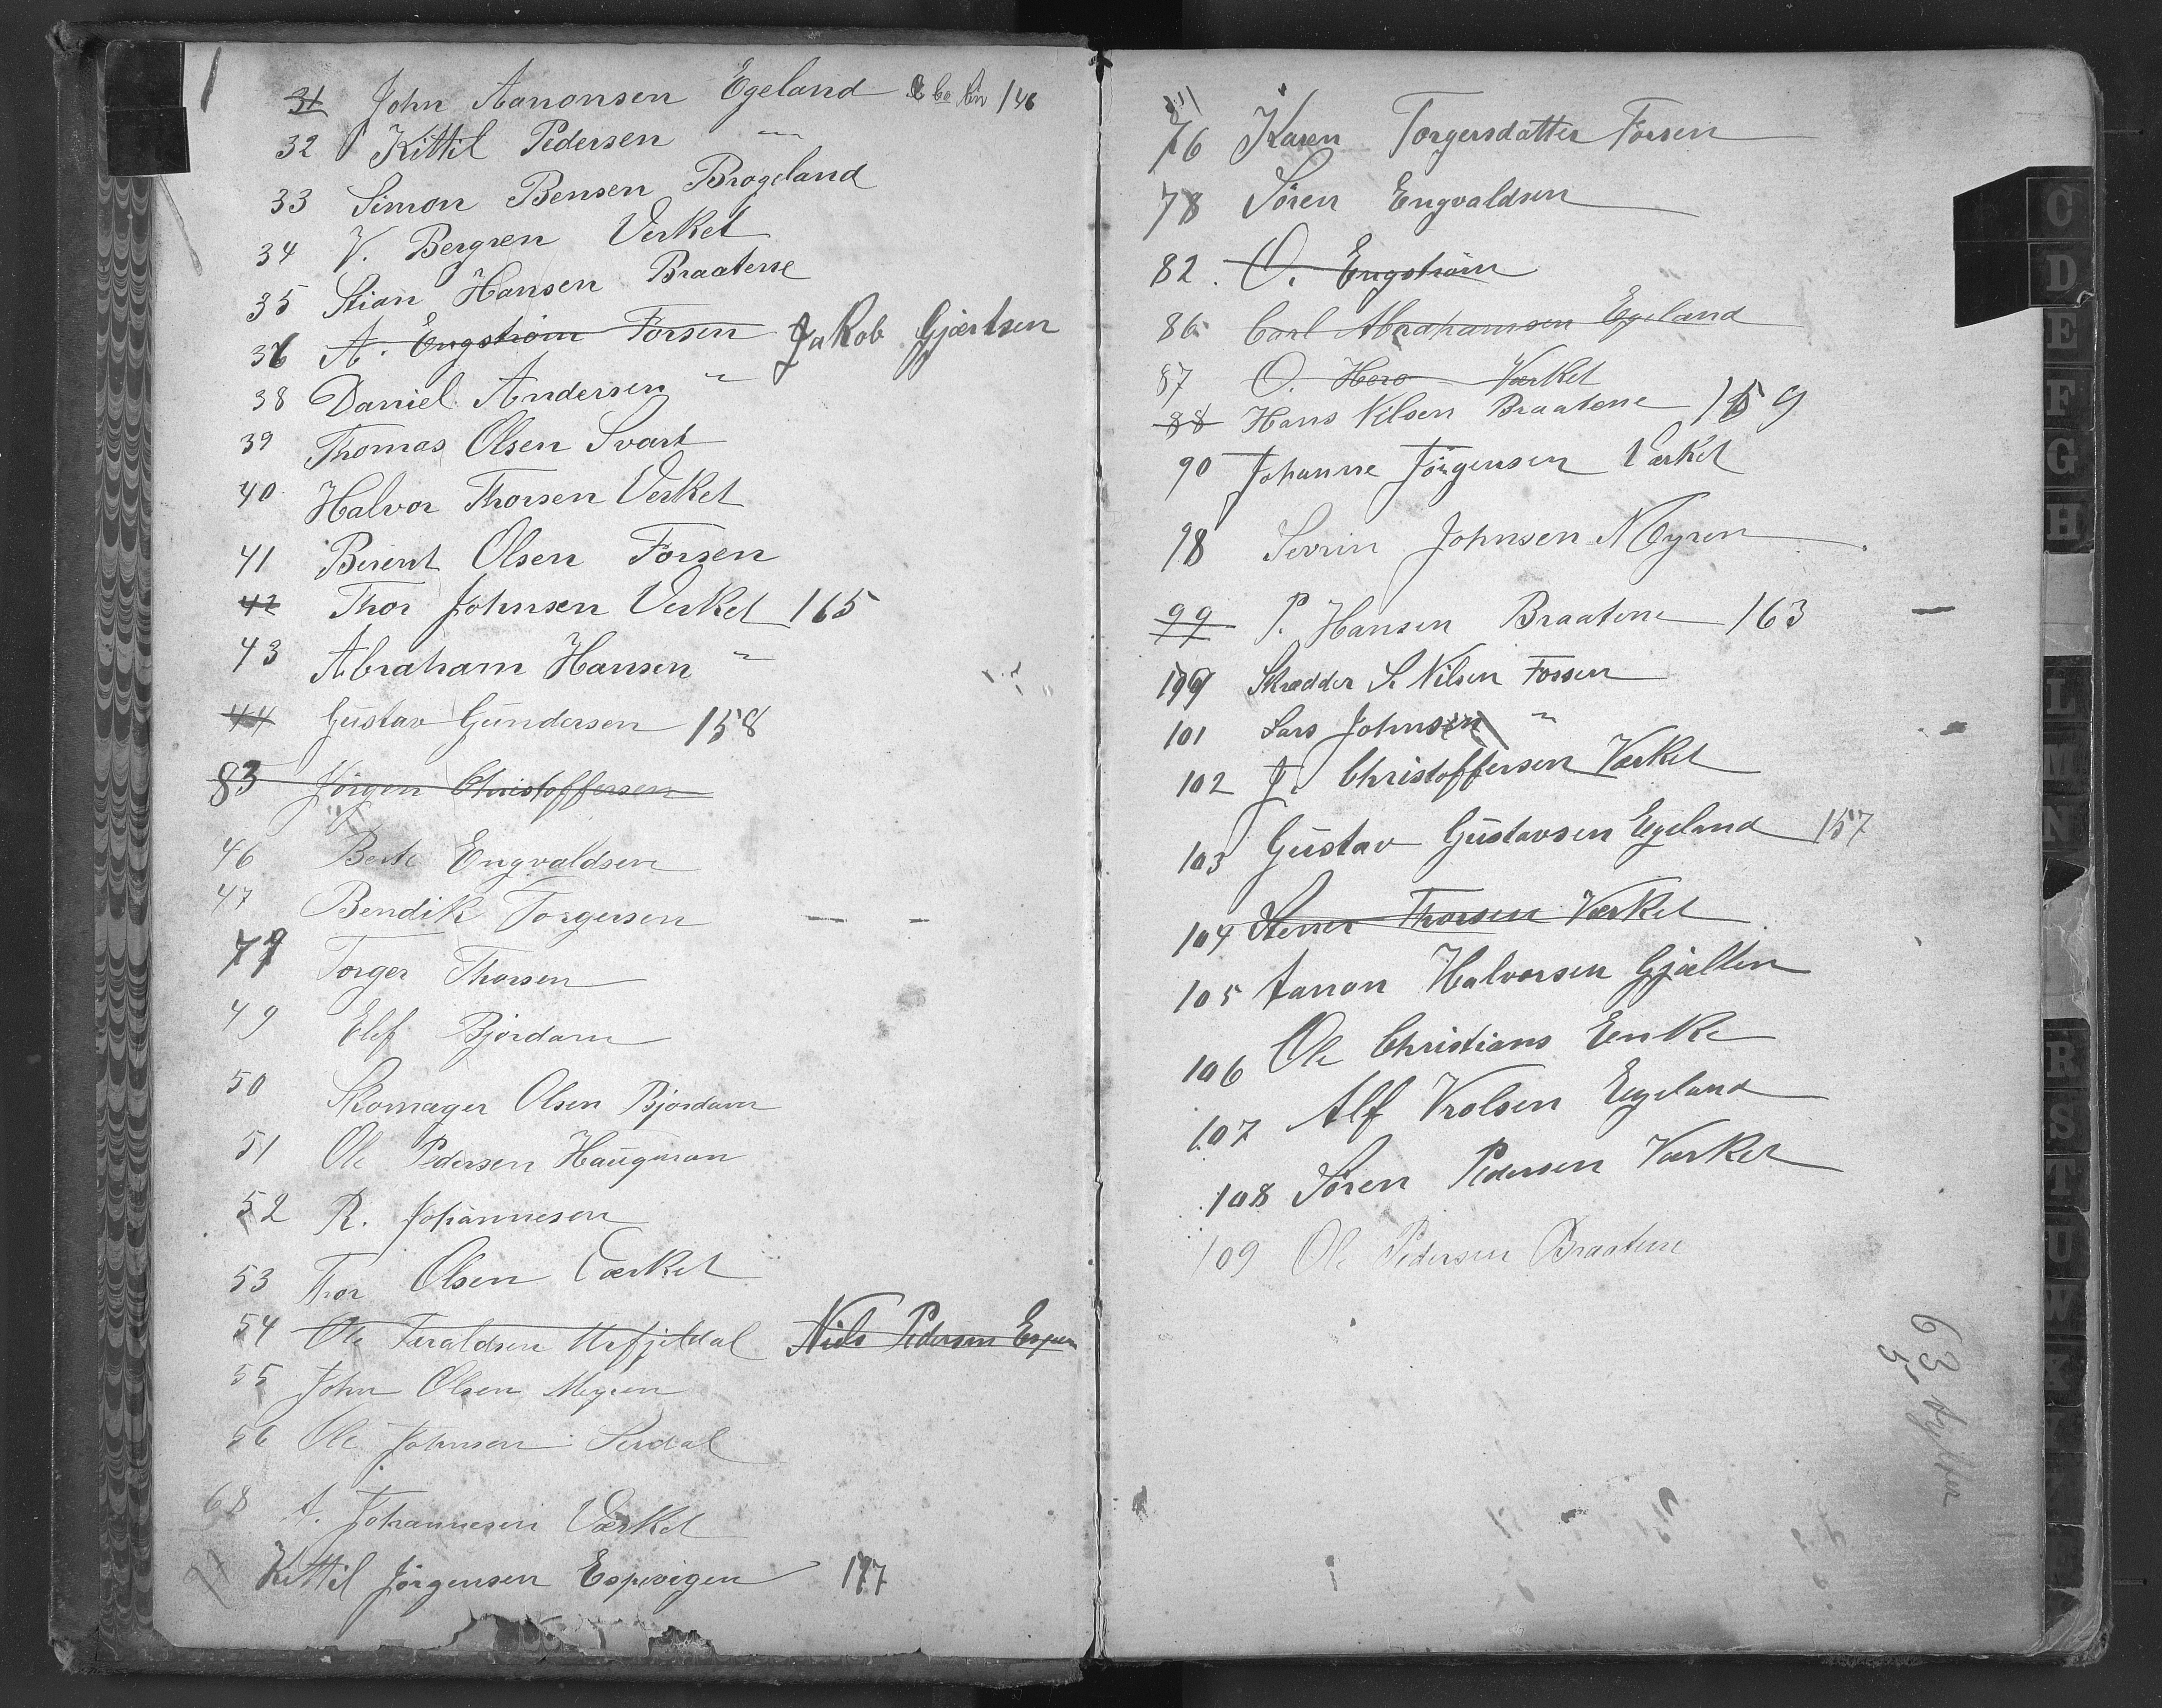 31 John Aanonsen Egeland 146
32 Kittil Pedersen "
33 Simon Bensen Brogeland
34 V. Bergren Verket
35 Stian Hansen Braatene
36 A. Engström Forsen Jakob Gjertsen
38 Daniel Andersen "
39 Thomas Olsen Svart
40 Halvor Thorsen Verket
41 Berent Olsen Forsen
42 Thor Johnsen Verket 165
43 Abraham Hansen "
44 Gustav Gundersen 158
83 Jörgen Christoffersen
46 Berte Engvaldsen
47 Bendik Torgersen
77 Torger Thorsen
49 Elef Bjordam
50 Skomager Olsen Bjordam
51 Ole Pedersen Haugman
52 R. Johannesen
53 Thor Olsen Værket
54 Ole Taraldsen Niels Pedersen Espev
55 John Olsen Myren
56 Ole Johnsen Serdal
68 A. Johannesen Værket
71 Kittil Jörgensen Espevigen 177
76 Karen Torgersdatter Forsen
78 Sören Engvaldsen
82. O. Engström
86 Carl Abrahamsen Egeland
87 O. Hero Værket
88 Hans Nilsen Braatene 159
90 Johanne Jörgensen Værket
98 Sevrin Johnsen Myren
99 P. Hansen Braatene 163
199 Skrædder S. Nilsen Fossen
101 Lars Johnsen "
102 J. Christoffersen Værket
103 Gustav Gustavsen Egeland 157
104 Thorsen Værket
105 Aanon Halvorsen Gjelten
106 Ole Christians Enke
107 Alf Vrolsen Egeland
108 Sören Pedersen Værket
109 Ole Pedersen Braatene
63
5
C
D
E
F
G
H
L
M
N
R
S
T
U
W